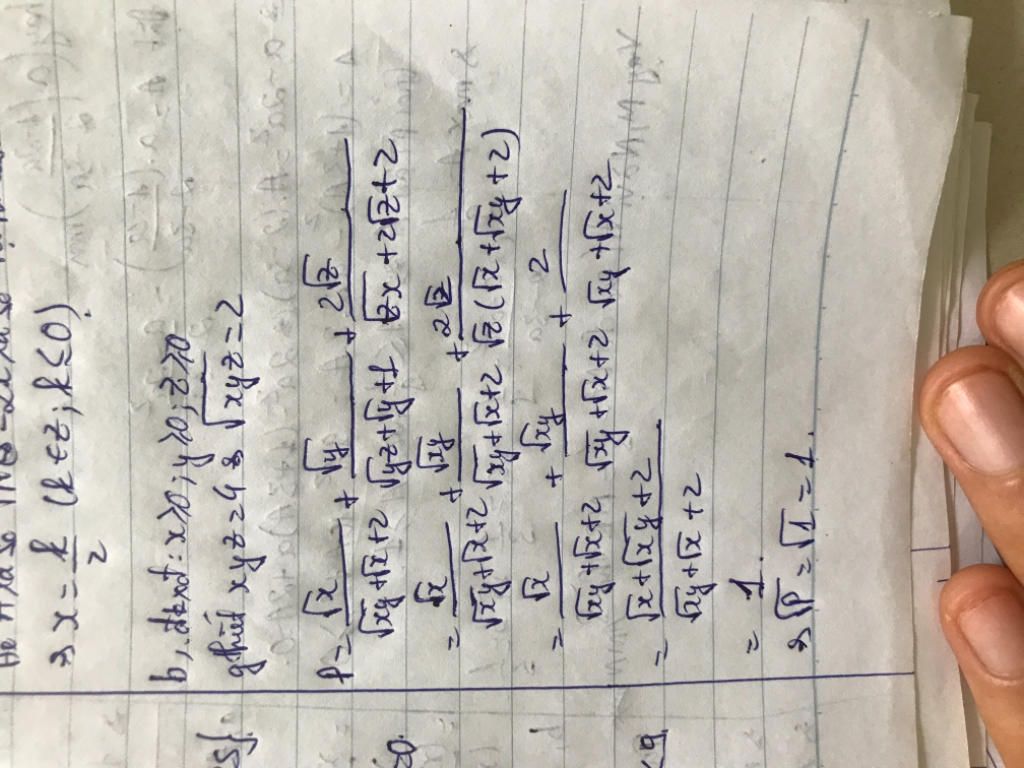 ⇒ x = k/2 (k ∈ Z; k ≤ 0)
b, đkxđ: x ≥ 0; y ≥ 0; z ≥ 0
gthiết xyz = 4 ⇒ √xyz = 2
P = √x/(√xy + √x + 2) + √y/(√yz + √y + 1) + 2√z/(√zx + 2√z + 2)
= √x/(√xy + √x + 2) + √xy/(√xy + √x + 2) + 2√z/(√z (√x + √xy + 2))
= √x/(√xy + √x + 2) + √xy/(√xy + √x + 2) + 2/(√xy + √x + 2)
= (√x + √xy + 2)/(√xy + √x + 2)
= 1.
⇒ √P = √1 = 1.